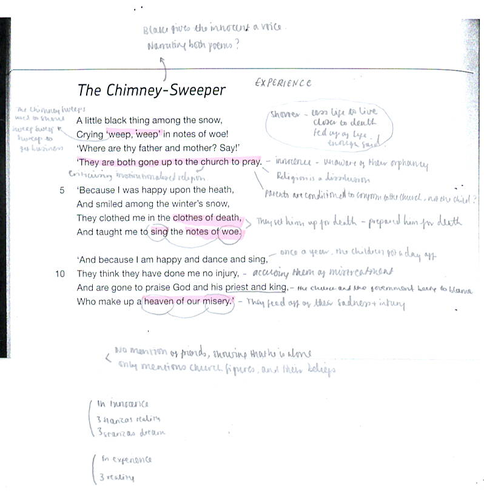 Blake gives the innocent a voice
Narrating both poems?
The Chimney-Sweeper
EXPERIENCE
The chimney sweeps
used to shout
sweep sweep
sweep to
get business
A little black thing among the snow,
Crying 'weep, weep' in notes of woe!
'Where are thy father and mother? Say!'
'They are both gone up to the church to pray.
shorter - less life to live
closer to death
fed up of life
- innocence - unaware of their orphancy
criticising institutionalised religion
Religion is a disillusion
Parents are conditioned to conform to the church, not the child?
5 'Because I was happy upon the heath,
And smiled among the winter's snow,
They clothed me in the clothes of death,
And taught me to sing the notes of woe.
They set him up for death - prepared him for death
'And because I am happy and dance and sing,
- once a year, the children get a day off
10 They think they have done me no injury,
- accusing them of mistreatment
And are gone to praise God and his priest and king,
- the church and the government being to blame
Who make up a heaven of our misery.'
- They feed off of their sadness + injury
No mention of friends, showing that he is alone
only mentions church figures, and their beliefs
In innocence
3 stanzas reality
3 stanzas dream
In experience
3 reality